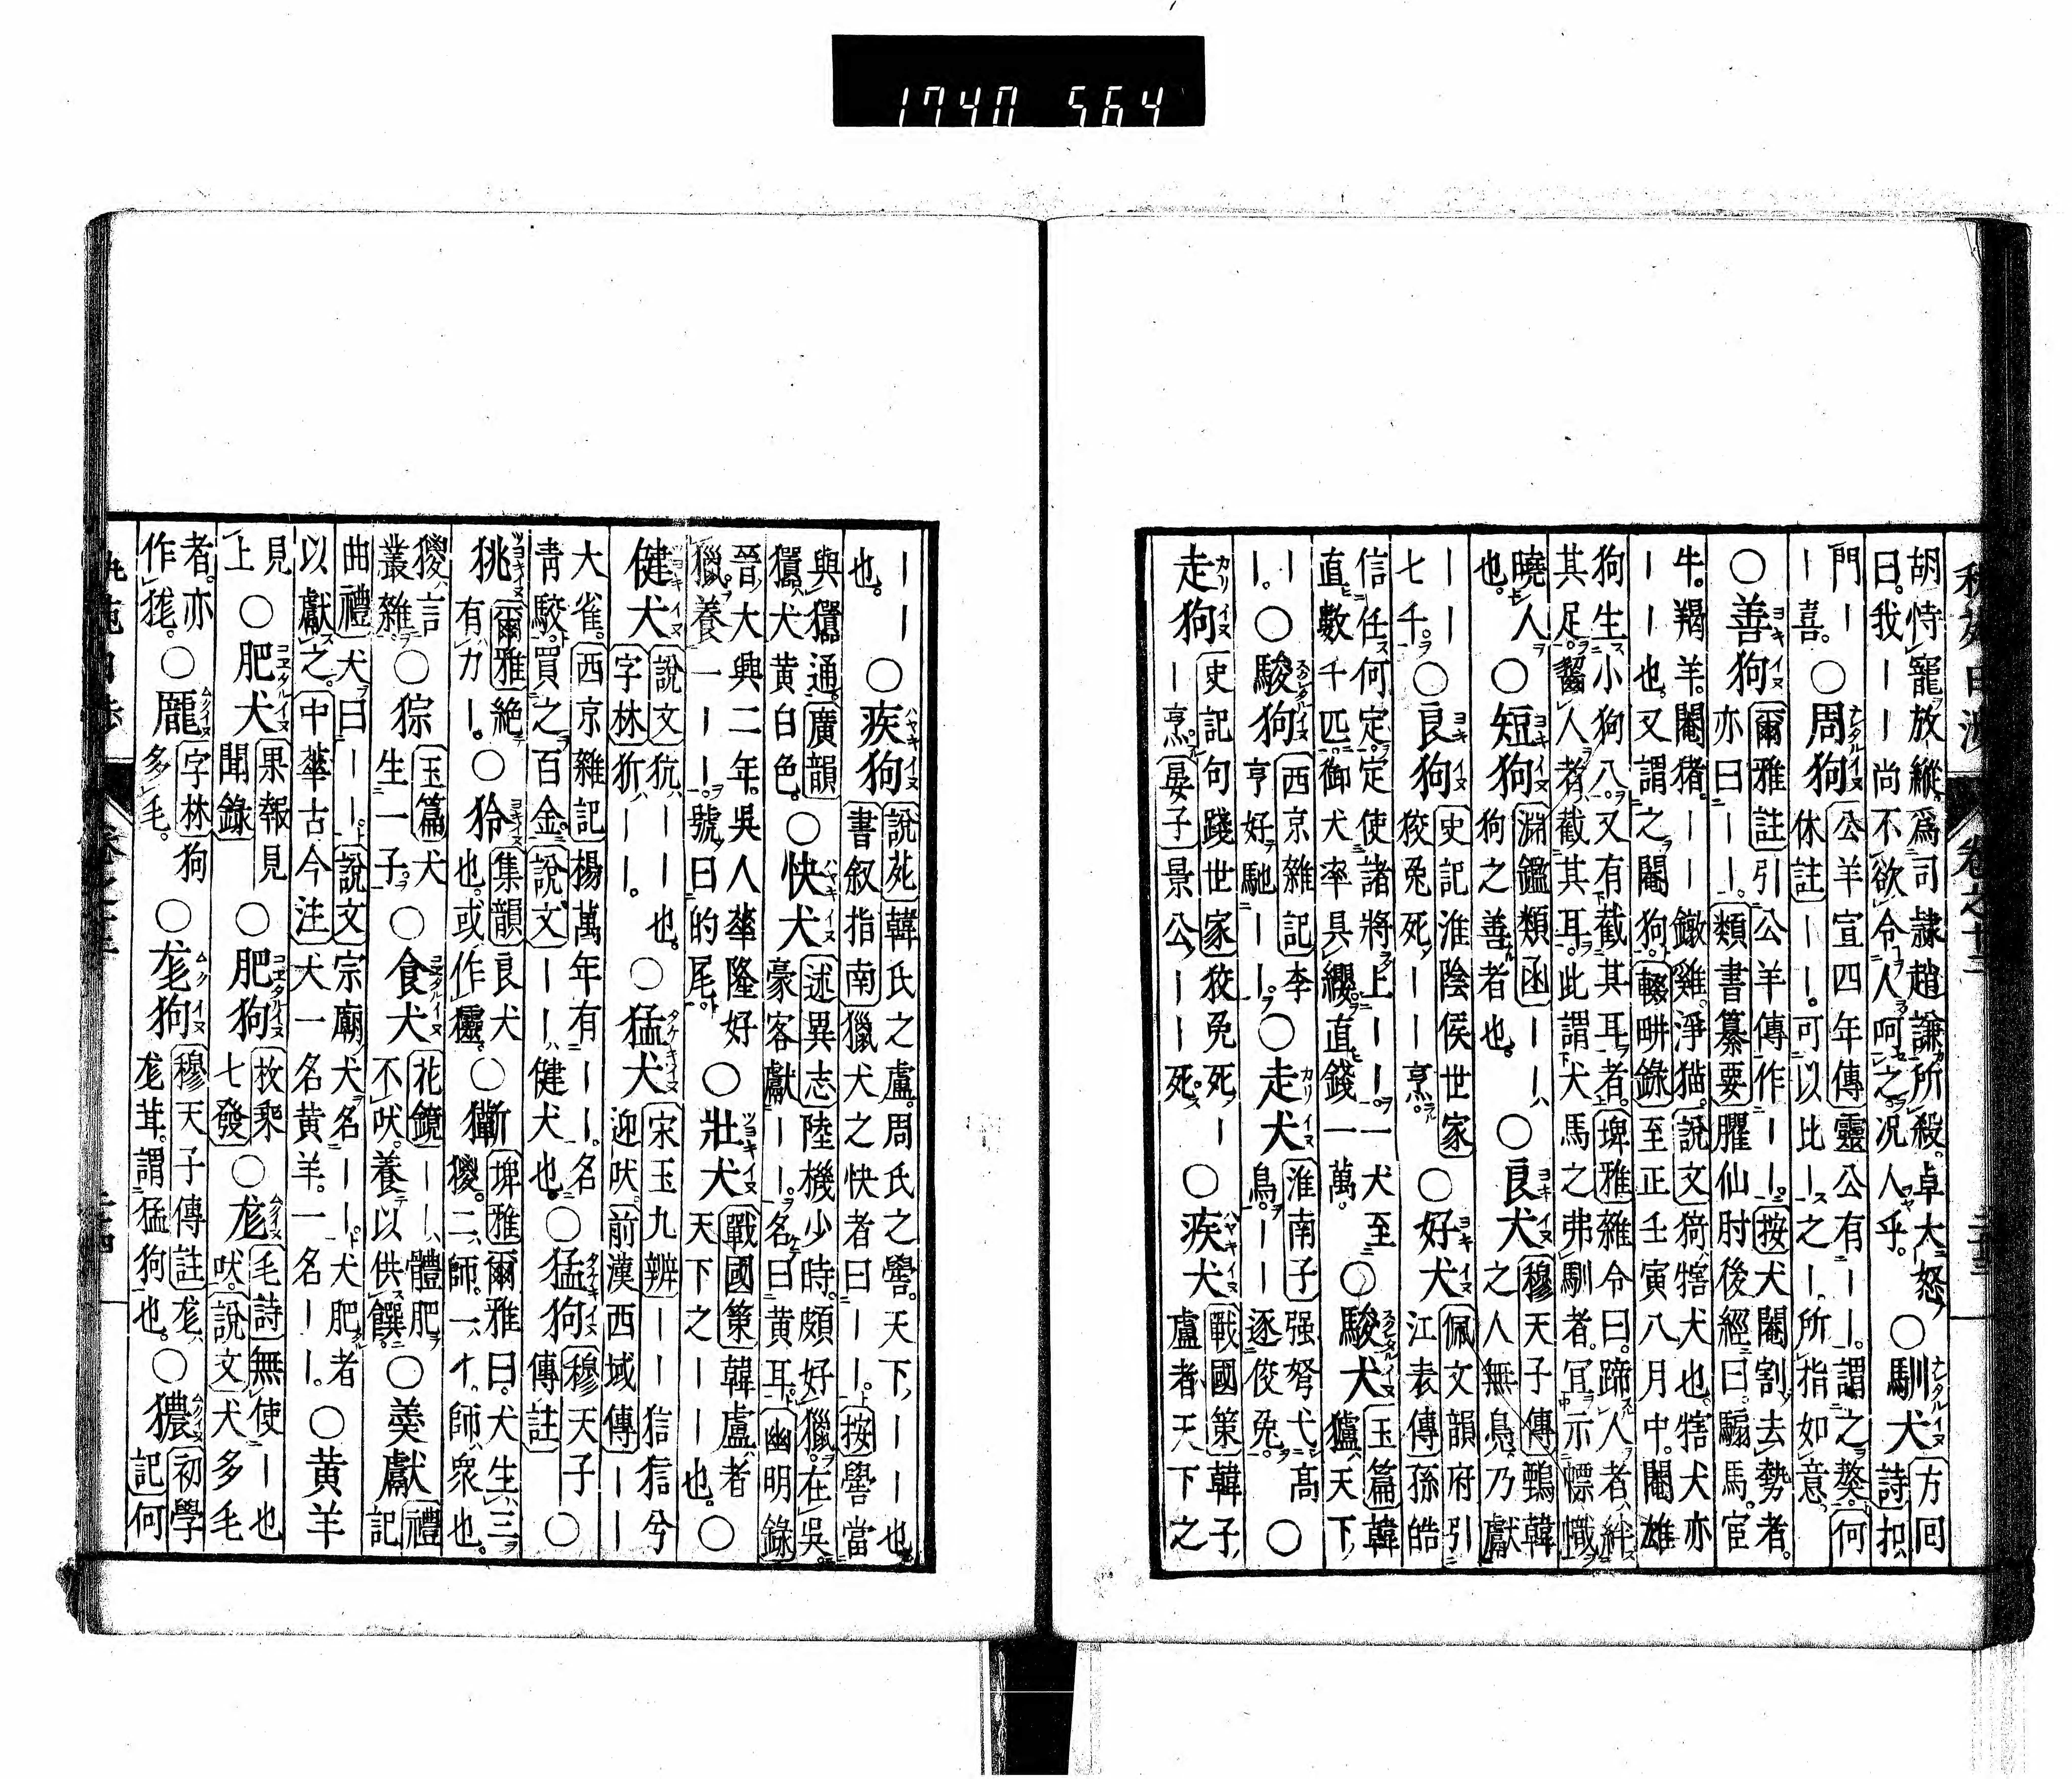 胡恃寵放縱爲司隷趙謙所殺卓大怒
曰我——尚不欲令人呵之况人乎
○馴犬
方回
詩扣
門—
—喜
○周狗
公羊宣四年傳靈公有——謂之獒何
休註——可以比—之—所指如意
○善狗
爾雅註引公羊傳作——按犬閹割去勢者
亦曰——類書纂要臞仙肘後經曰騸馬宦
牛羯羊閹猪——鐓雞淨猫說文猗犗犬也犗犬亦
——也又謂之閹狗輟畊錄至正壬寅八月中閹雄
狗生小狗八又有截其耳者埤雅雜令曰蹄人者絆
其足齧人者截其耳此謂犬馬之弗馴者宜示幖幟
曉人
也
○短狗
淵鑑類函——
狗之善者也
○良犬
穆天子傳鵄韓
之人無鳧乃獻
——
七千
○良狗
史記淮陰侯世家
狡兔死——烹
○好犬
佩文韻府引
江表傳孫皓
信任何定定使諸將上——一犬至
直數千匹御犬率具纓直錢一萬
○駿犬
玉篇韓
獹天下
—
—
○駿狗
西京雜記李
亨好馳——
○走犬
淮南子强弩弋高
鳥——逐狡兔
○
走狗
史記句踐世家狡兔死—
—烹晏子景公——死
○疾犬
戰國策韓子
盧者天下之
——
也
○疾狗
說苑韓氏之盧周氏之嚳天下——也
書叙指南獵犬之快者曰——按嚳當
與㹱通廣韻
㹱犬黄白色
○快犬
述異志陸機少時頗好獵在吳
豪客獻——名曰黄耳幽明錄
晉大興二年吳人華隆好
獵養一——號曰的尾
○壯犬
戰國策韓盧者
天下之——也
○
健犬
說文犺——也
字林——
○猛犬
宋玉九辨——信狺兮
迎吠前漢西域傳——
大雀西京雜記楊萬年有——名
青駮買之百金說文——健犬也
○猛狗
穆天子
傳註
○
狣
爾雅絶
有力—
○狑
集韻良犬
也或作
○
埤雅爾雅曰犬生三
猣二師一師衆也
猣言
叢雜
○猔
玉篇犬
生一子
○食犬
花鏡——體肥
不吠養以供饌
○羹獻
禮
記
曲禮犬曰——說文宗廟犬名——犬肥者
以獻之中華古今注犬一名黄羊一名——
○黄羊
見
上
○肥犬
果報見
聞錄
○肥狗
枚乘
七發
○尨
毛詩無使—也
吠說文犬多毛
者亦
作狵
○龎
字林狗
多毛
○尨狗
穆天子傳註尨
尨茸謂猛狗也
○獳
初學
記何